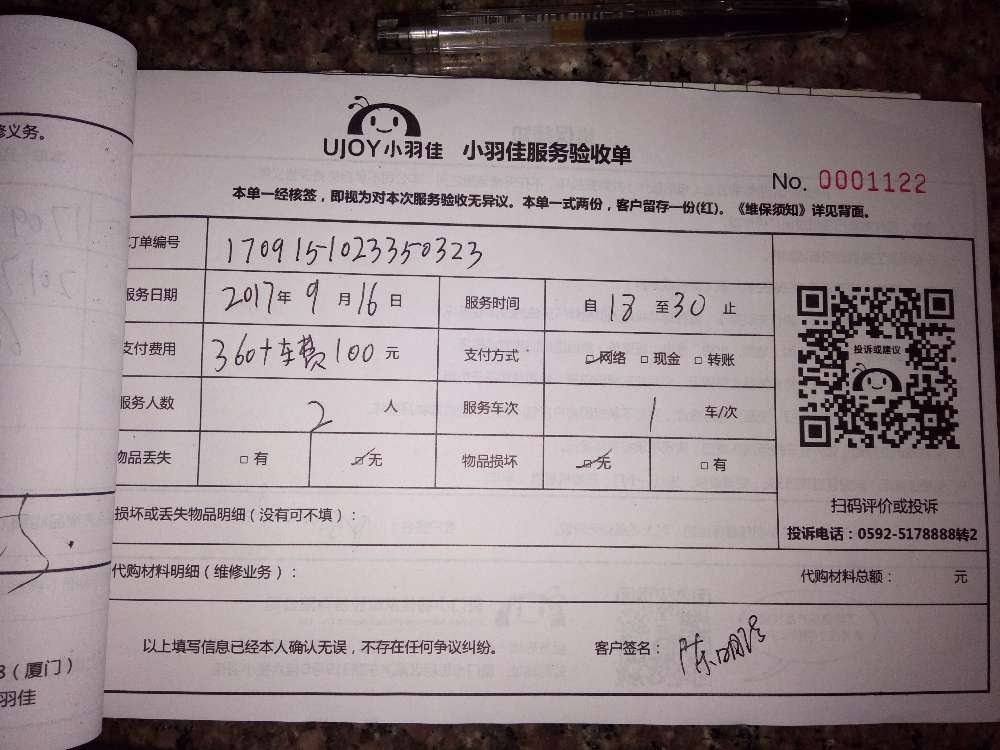 修义务。
UJOY小羽佳 小羽佳服务验收单
No. 0001122
本单一经核签，即视为对本次服务验收无异议。本单一式两份，客户留存一份(红)。《维保须知》详见背面。
订单编号 1709151023350323
服务日期 2017年9月16日 服务时间 自18至30止
支付费用 360+车费100元 支付方式 □网络 □现金 □转账
投诉或建议
服务人数 2人 服务车次 1车/次
物品丢失 □有 □无 物品损坏 □无 □有
扫码评价或投诉
损坏或丢失物品明细（没有可不填）：
投诉电话：0592-5178888转2
代购材料明细（维修业务）： 代购材料总额： 元
以上填写信息已经本人确认无误，不存在任何争议纠纷。 客户签名：
8（厦门）
羽佳